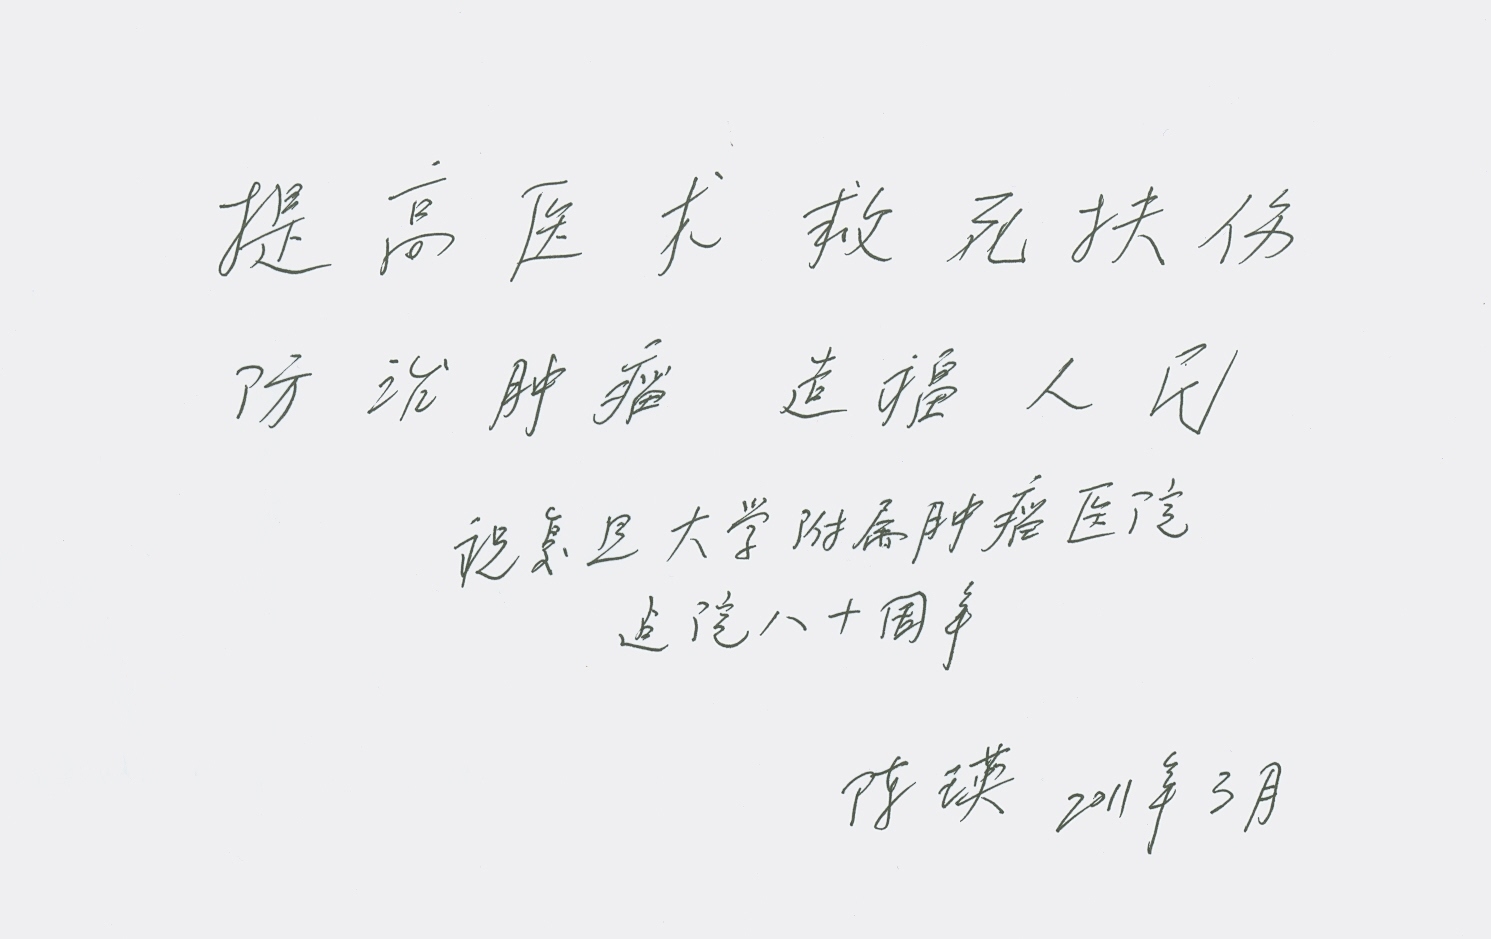 提高医术 救死扶伤
防治肿瘤 造福人民
祝复旦大学附属肿瘤医院
建院八十周年
陈瑛 2011年3月